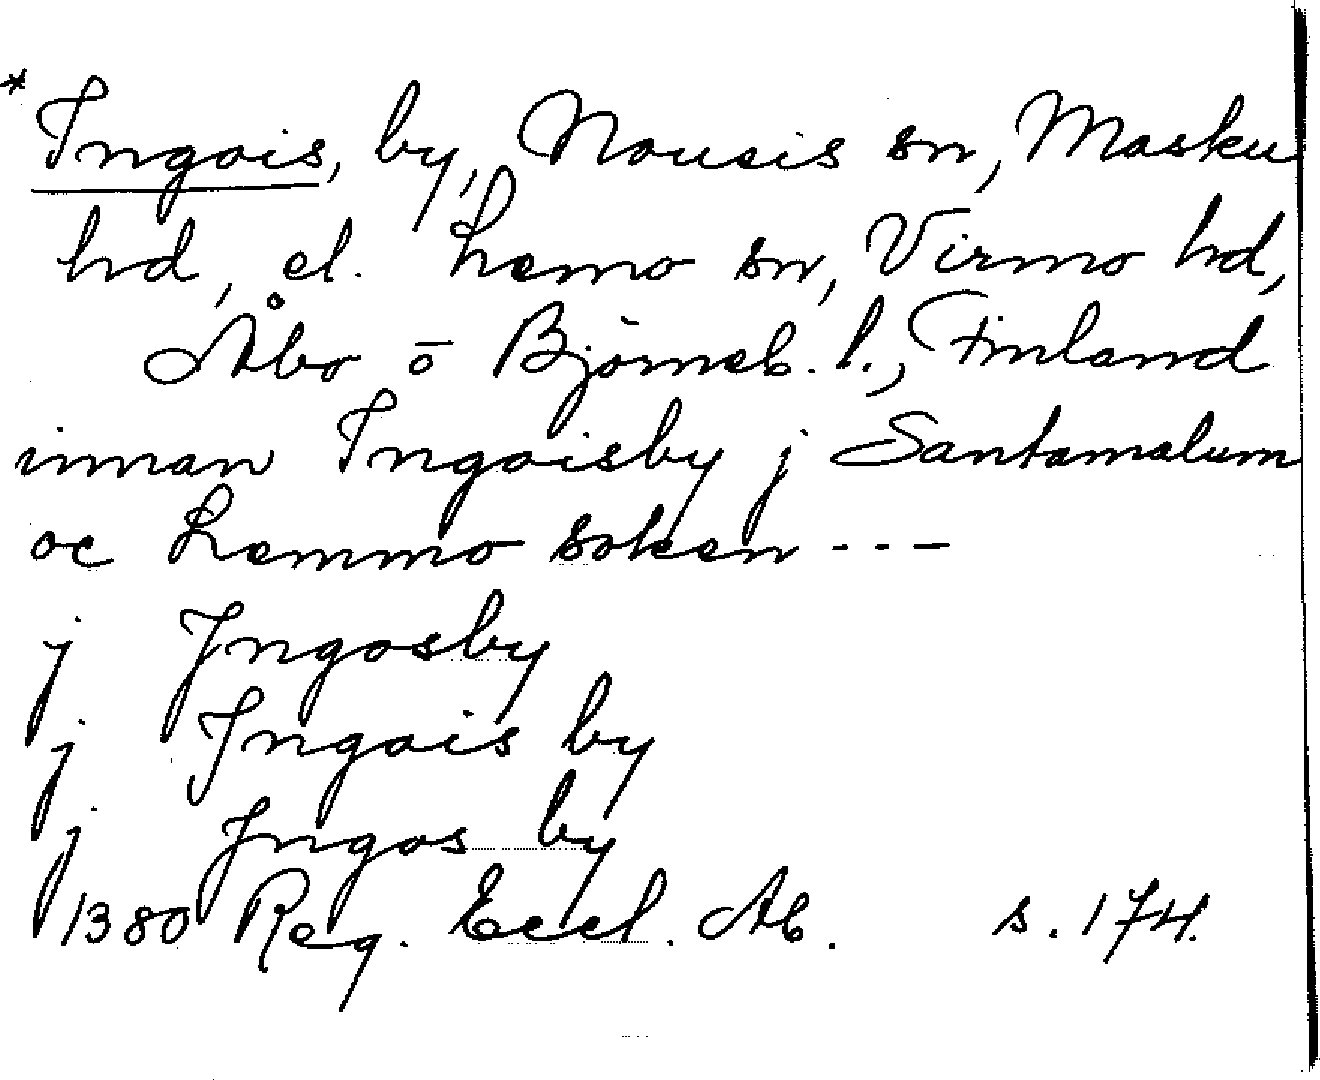 * Ingois, by, Nousis sn, Masku
hd, el. Lemo sn, Virmo hd,
Åbo o Björneb. l., Finland
innan Ingoisby j Santamalum
oc Lemmo soken ---
j Jngosby
j Jngois by
j Jngos by
1380 Reg. Eccl. Ab. s. 174.